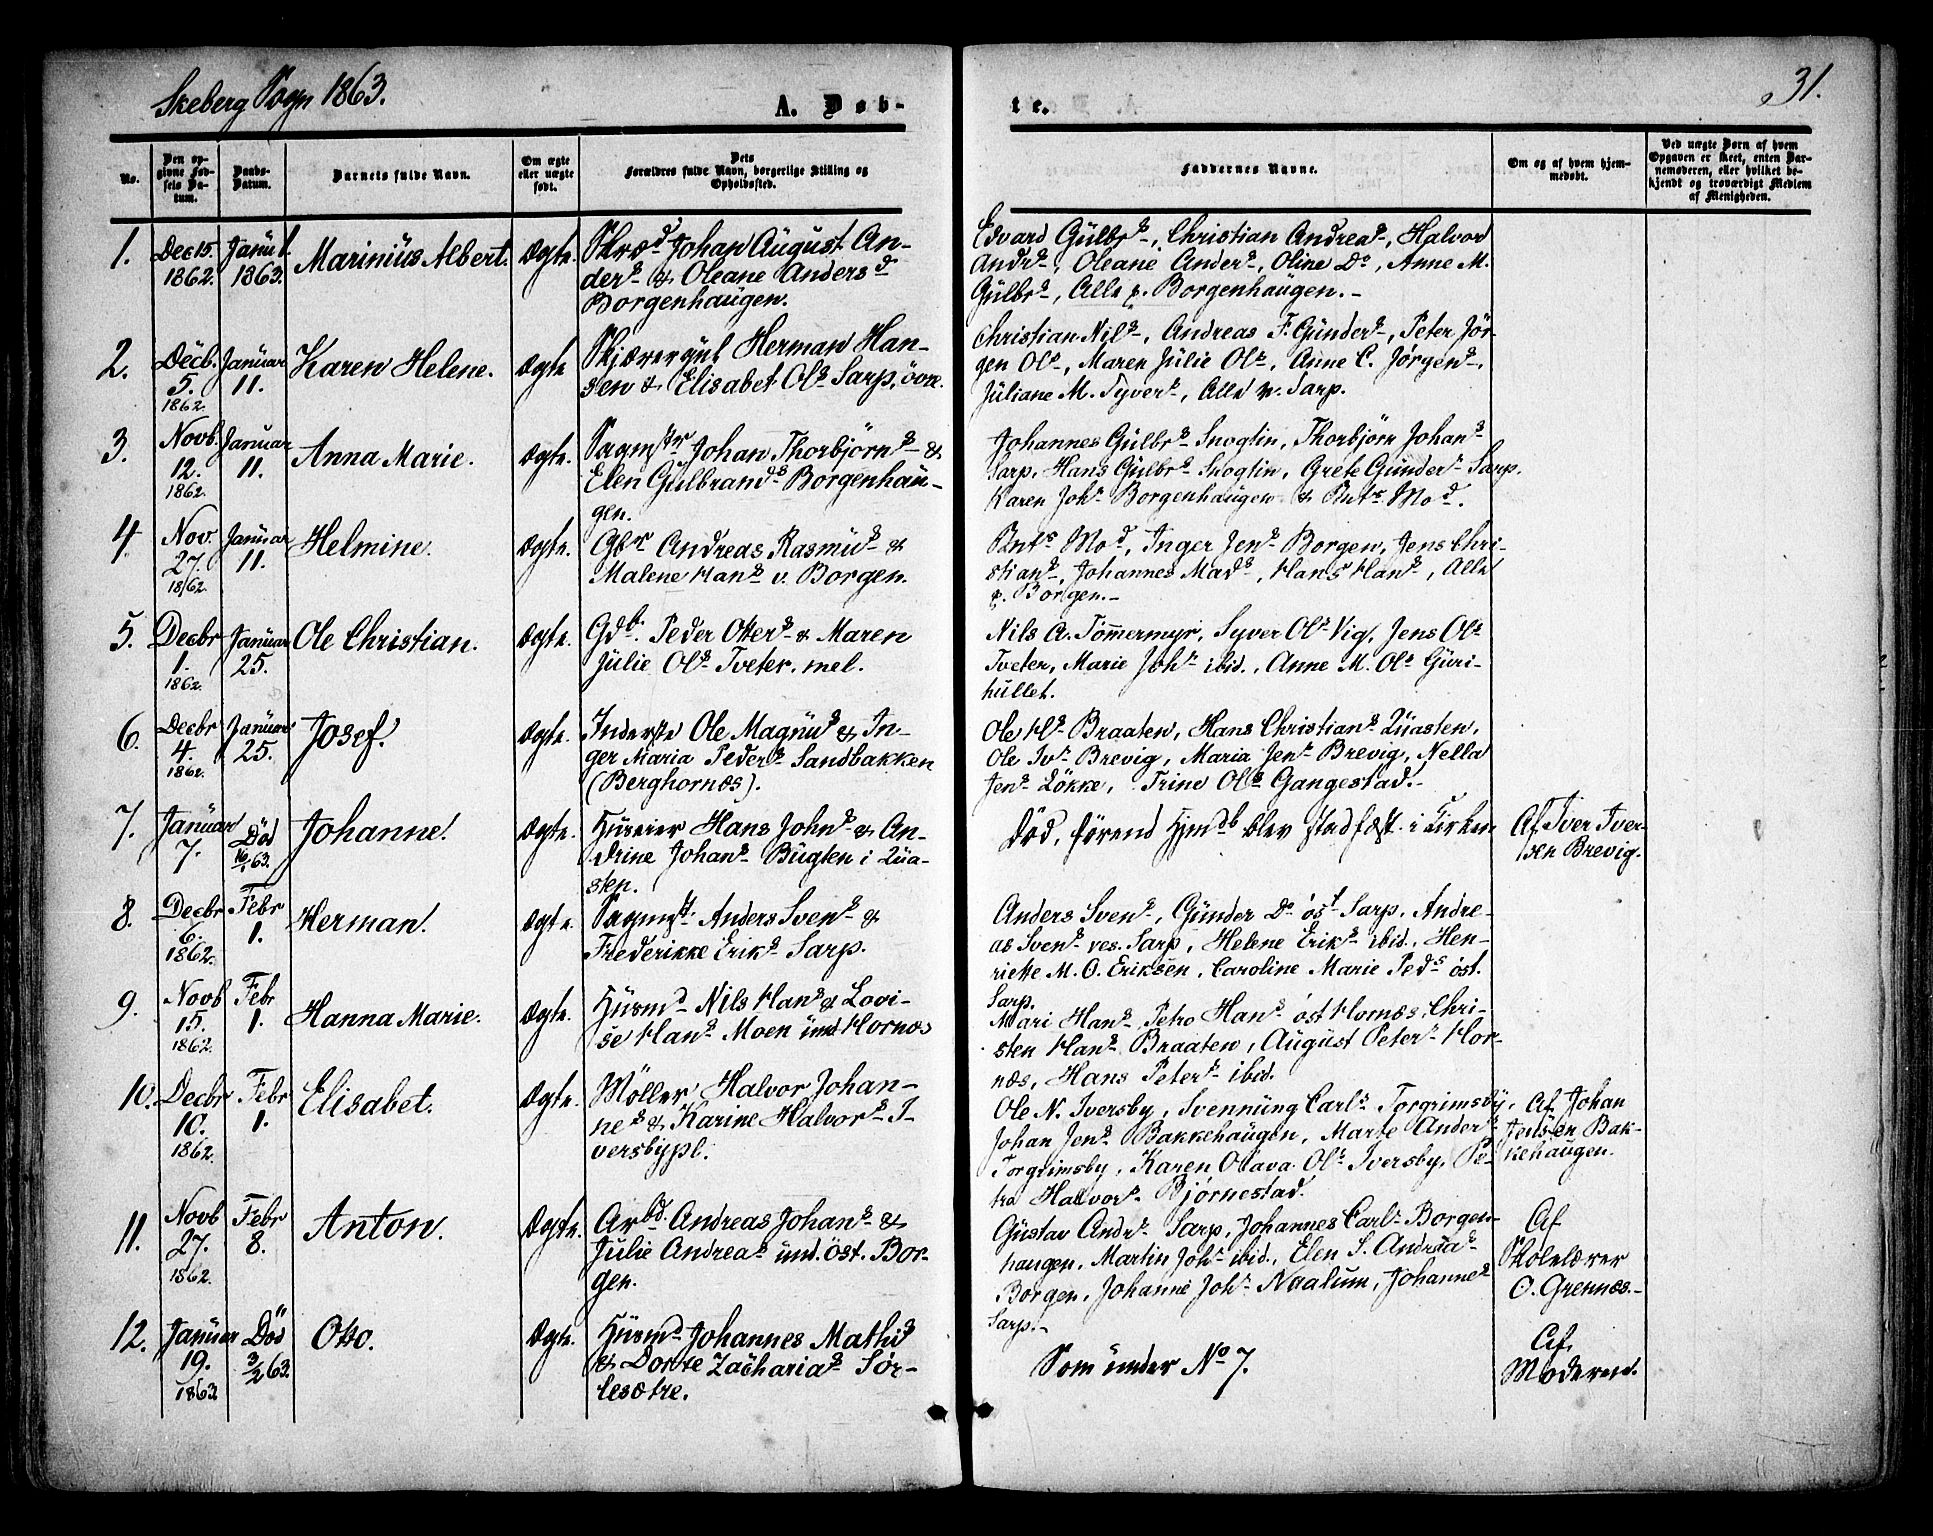 Skeberg Sogn 1863.
A. Døb-
te.
31.
No.
Den op-
givne Fød-
sels Da-
tum.
Daabs-
Datum.
Barnets fulde Navn.
Om ægte
eller uægte
født.
Dets
Forældres fulde Navn, borgerlige Stilling og
Opholdssted.
Faddernes Navne.
Om og af hvem hjem-
medøbt.
Ved uægte Børn af hvem
Opgaven er skeet, enten Bar-
nemoderen, eller hvilket be-
kjendt og troværdigt Medlem
af Menigheden.
1.
Dec 15.
1862.
Janu 1.
1863.
Marinius Albert.
Ægte.
Skræd Johan August An-
ders & Oleane Anders d
Borgenhaugen.
Edvard Gulbrs, Christian Andreas, Halvor
Andrs, Oleane Anders, Oline Do, Anne M.
Gulbrs, Alle p. Borgenhaugen.-
2.
Decb.
5.
1862.
Januar
11.
Karen Helene.
Ægte
Herman Han-
sen & Elisabet Ols Sarp, övre.
Christian Nils, Andreas F. Gunders, Peter Jör-
gen Ols, Maren Julie Ols, Anne C. Jørgens,
Juliane M. Syvers, Alle v. Sarp.
3.
Novb.
12.
1862.
Januar
11.
Anna Marie.
Ægte.
Sagmstr Johan Thorbjörns &
Elen Gulbrands Borgenhau-
gen.
Johannes Gulbrs Skogtin, Thorbjörn Johans
Sarp, Hans Gulbrs Skogtin, Grete Gunders Sarp.
Karen Johs Borgenhaugen & Bnts Mod.
4
Nov.
27.
1862.
Januar
11.
Helmine.
Ægte.
Gbr Andreas Rasmus &
Malene Hans v. Borgen.
Bnts Mod, Inger Jens Borgen, Jens Chri-
stians, Johannes Mads, Hans Hans, Alle
p. Borgen.-
5.
Decbr
1.
1862.
Januar
25.
Ole Christian.
Ægte.
Gdb. Peder Otters & Maren
Julie Ols Tveter, mel.
Nils A. Tömmermyr, Syver Ols Vig, Jens Ols
Tveter, Marie Johs ibid., Anne M. Ols Guri-
hullet.
6.
Decbr
4.
1862.
Januar
25.
Josef.
Ægte.
Inderste Ole Magnus & In-
ger Maria Peders Sandbakken
(Berghornæs).
Ole Hs Braaten, Hans Christians Quasten,
Ole Ivs Brevig, Maria Jens Brevig, Nella
Jens Løkke, Trine Ols Gangestad.-
7.
Januar
7.
Död
16/1 63.
Johanne.
Ægte.
Huseier Hans Johns & An-
drine Johans Bugten i Qua-
sten.
Död, förend Hjmdb blev stadfæst. i Kirken
Af Iver Iver-
sen Brevig.
8.
Decbr
6.
1862.
Febr
1.
Herman.
Ægte.
Sagmst. Anders Svens &
Frederikke Eriks Sarp.
Anders Svens, Gunder Do öst Sarp, Andre-
as Svens ves. Sarp, Helene Eriks ibid., Hen-
riette M. O. Eriksen, Caroline Marie Peds öst.
Sarp.
9.
Novb
15.
1862.
Febr
1.
Hanna Marie.
Ægte.
Husmd Nils Hans & Lovi-
se Hans Moen und Hornæs
Mari Hans, Petro Hans öst Hornæs, Chri-
sten Hans Braaten, August Peters Hor-
næs, Hans Peters ibid.
10.
Decbr
10.
1862.
Febr
1.
Elisabet.
Ægte.
Möller Halvor Johan-
nes & Karine Halvors I-
versbypl.
Ole N. Iversby, Svennung Carls Torgrimsby,
Johan Jens Bakkehaugen, Marte Anders
Torgrimsby, Karen Olava Ols Iversby, Pe-
tra Halvors Bjørnestad.
Af Johan
Jensen Bak-
kehaugen.
11.
Novb
27.
1862.
Febr
8.
Anton.
Ægte.
Arbd. Andreas Johans &
Julie Andreas und. öst. Bor-
gen.
Gustav Andrs Sarp, Johannes Carls Borgen-
haugen, Martin Johs ibid., Elen S. Andreas
Borgen, Johanne Johs Naalum, Johannes
Sarp.-
Af
Skolelærer
O. Grennæs.-
12.
Januar
19.
1863
Död
3/2 63.
Otto.
Ægte.
Husmd Johannes Mathis
& Dorte Zacharias Sør-
lesætre.
Som under No 7.
Af
Moderen.